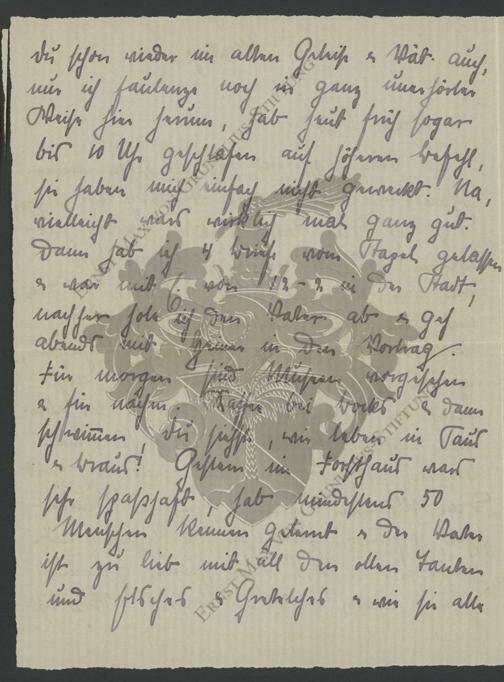 du schon wieder im alten Geleise & Väb. auch,
nur ich faulenze noch in ganz unerhörter
Weise hier herum, hab heut früh sogar
bis 10 Uhr geschlafen auf höheren Befehl,
sie haben mich einfach nicht geweckt. Na,
vielleicht wars wirklich mal ganz gut.
Dann hab ich 4 Briefe vom Stapel gelassen
& war mit G. von 12-2 in der Stadt,
nachher hole ich den Vater ab & geh
abends mit in den Vortrag.
Für morgen sind Museen vorgesehen
& für nachm. bei Bocks & dann
schwimmen! Du siehst, wir leben in Saus
& Braus! Gestern im Forsthaus wars
sehr spasshaft, hab mindestens 50
Menschen kennen gelernt & der Vater
ist zu lieb mit all den ollen Tanten
und & Gretelches & wie sie alle
ERNST MAX VON GRUNELIUS-STIFTUNG
ERNST MAX VON GRUNELIUS-STIFTUNG